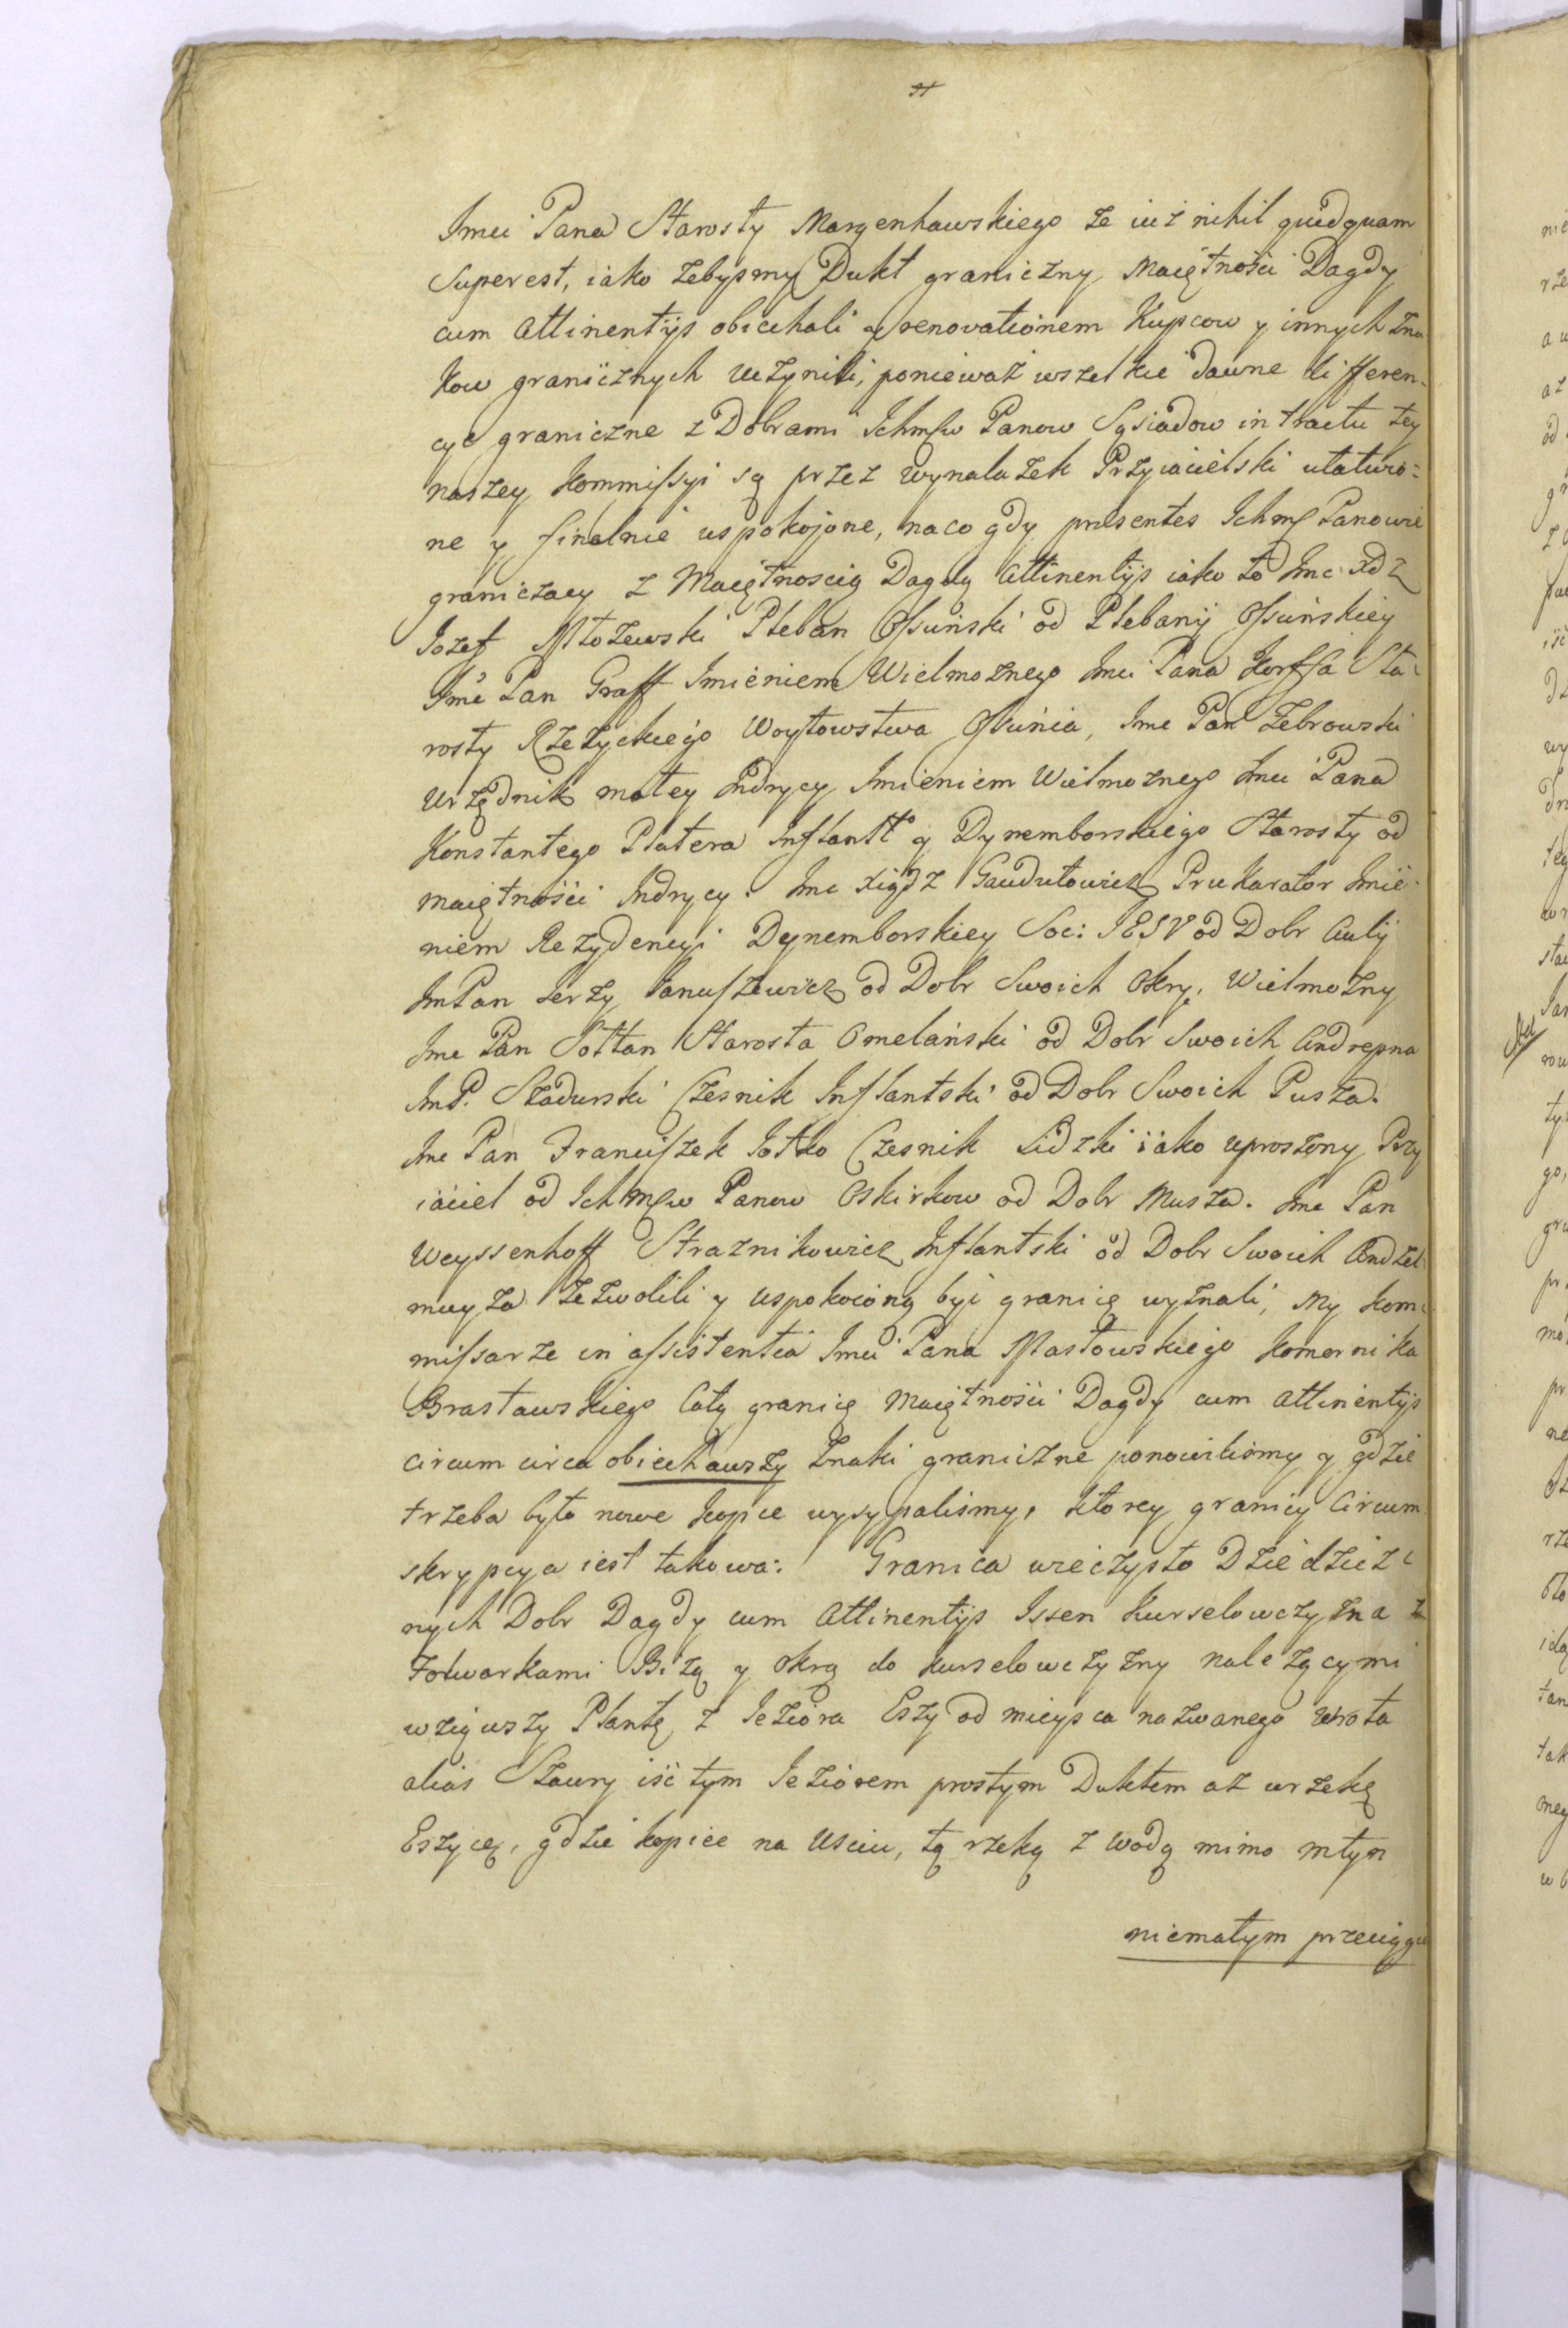 Jmci Pana Starosty Margenhawskiego że iuż nihil quidquam
Superest, iako żebysmy Dukt graniczny Maiętności Dagdy
cum Attinentijs obiechali y renovationem Kupcow y innych Zna
kow granicznych uczynili, poniewaz wszelkie dawne differen-
cye graniczne z Dobrami Ichmśćw Panow Sąsiadow in tractu tey
naszey Kommissyi są przez wynalazek Przyiacielski ułatwio=
ne y finalnie uspokojone, na co gdy presentes Ichmść Panowie
graniczacy z Maiętnoscią Dagdą Attinentijs iako to Jmc Xdz
Jozef Młożewski Pleban Ossuński od Plebanij Ossuńskiey
Jmć Pan Graff Jmieniem Wielmożnego Jmci Pana Korffa Sta-
rosty Rzeżyckiego Woytowstwa Ossunia, Jmc Pan Żebrowski
Urzędnik małey Jndrycy Jmieniem Wielmożnego Jmci Pana
Konstantego Platera Inflantt° y Dynemborskiego Starosty od
maiętności Jndrycy. Jmc Xiądz Gaudutowicz Prukarator Jmie-
niem Rezydencyi Dynemborskiey Soc: IESV od Dobr Aulij
JmPan Jerzy Januszewicz od Dobr Swoich Okry, Wielmożny
Jmc Pan Sołtan Starosta Omelański od Dobr Swoich Andrepna
JmP. Szadurski Czesnik Inflantski od Dobr Swoich Pusza.
Jmc Pan Franciszek Jotko Czesnik Lidzki iako uproszony Przy
iaciel od Ichmśćw Panow Oskirkow od Dobr Musza. Jmc Pan
Weyssenhoff Straznikowicz Inflantski od Dobr Swoich Andzel-
muyza zezwolili y uspokoioną byi granicę wyznali, My Kom-
missarze in assistentia Jmci Pana Masłowskiego Komornika
Brasławskiego całą granicę Maiętności Dagdy cum Attinentijs
circum circa obiechawszy Znaki graniczne ponowiliśmy y gdzie
trzeba było nowe kopce wysypaliśmy, ktorey granicy Circum
skrypcya iest takowa: Granica wieczysto Dziedzicz
nych Dobr Dagdy cum Attinentijs Issen Kurselowczyzna z
Folwarkami Bizą y Okrą do Kurselowczyzny należącymi
wziąwszy Plantę z Jeziora Eszy od mieysca nazwanego Wrota
alias Stawry iść tym Jeziorem prostym Duktem az w rzekę
Eszycę, gdzie kopiec na Usciu, tą rzeką z wodą mimo młyn
niemałym przeciągu